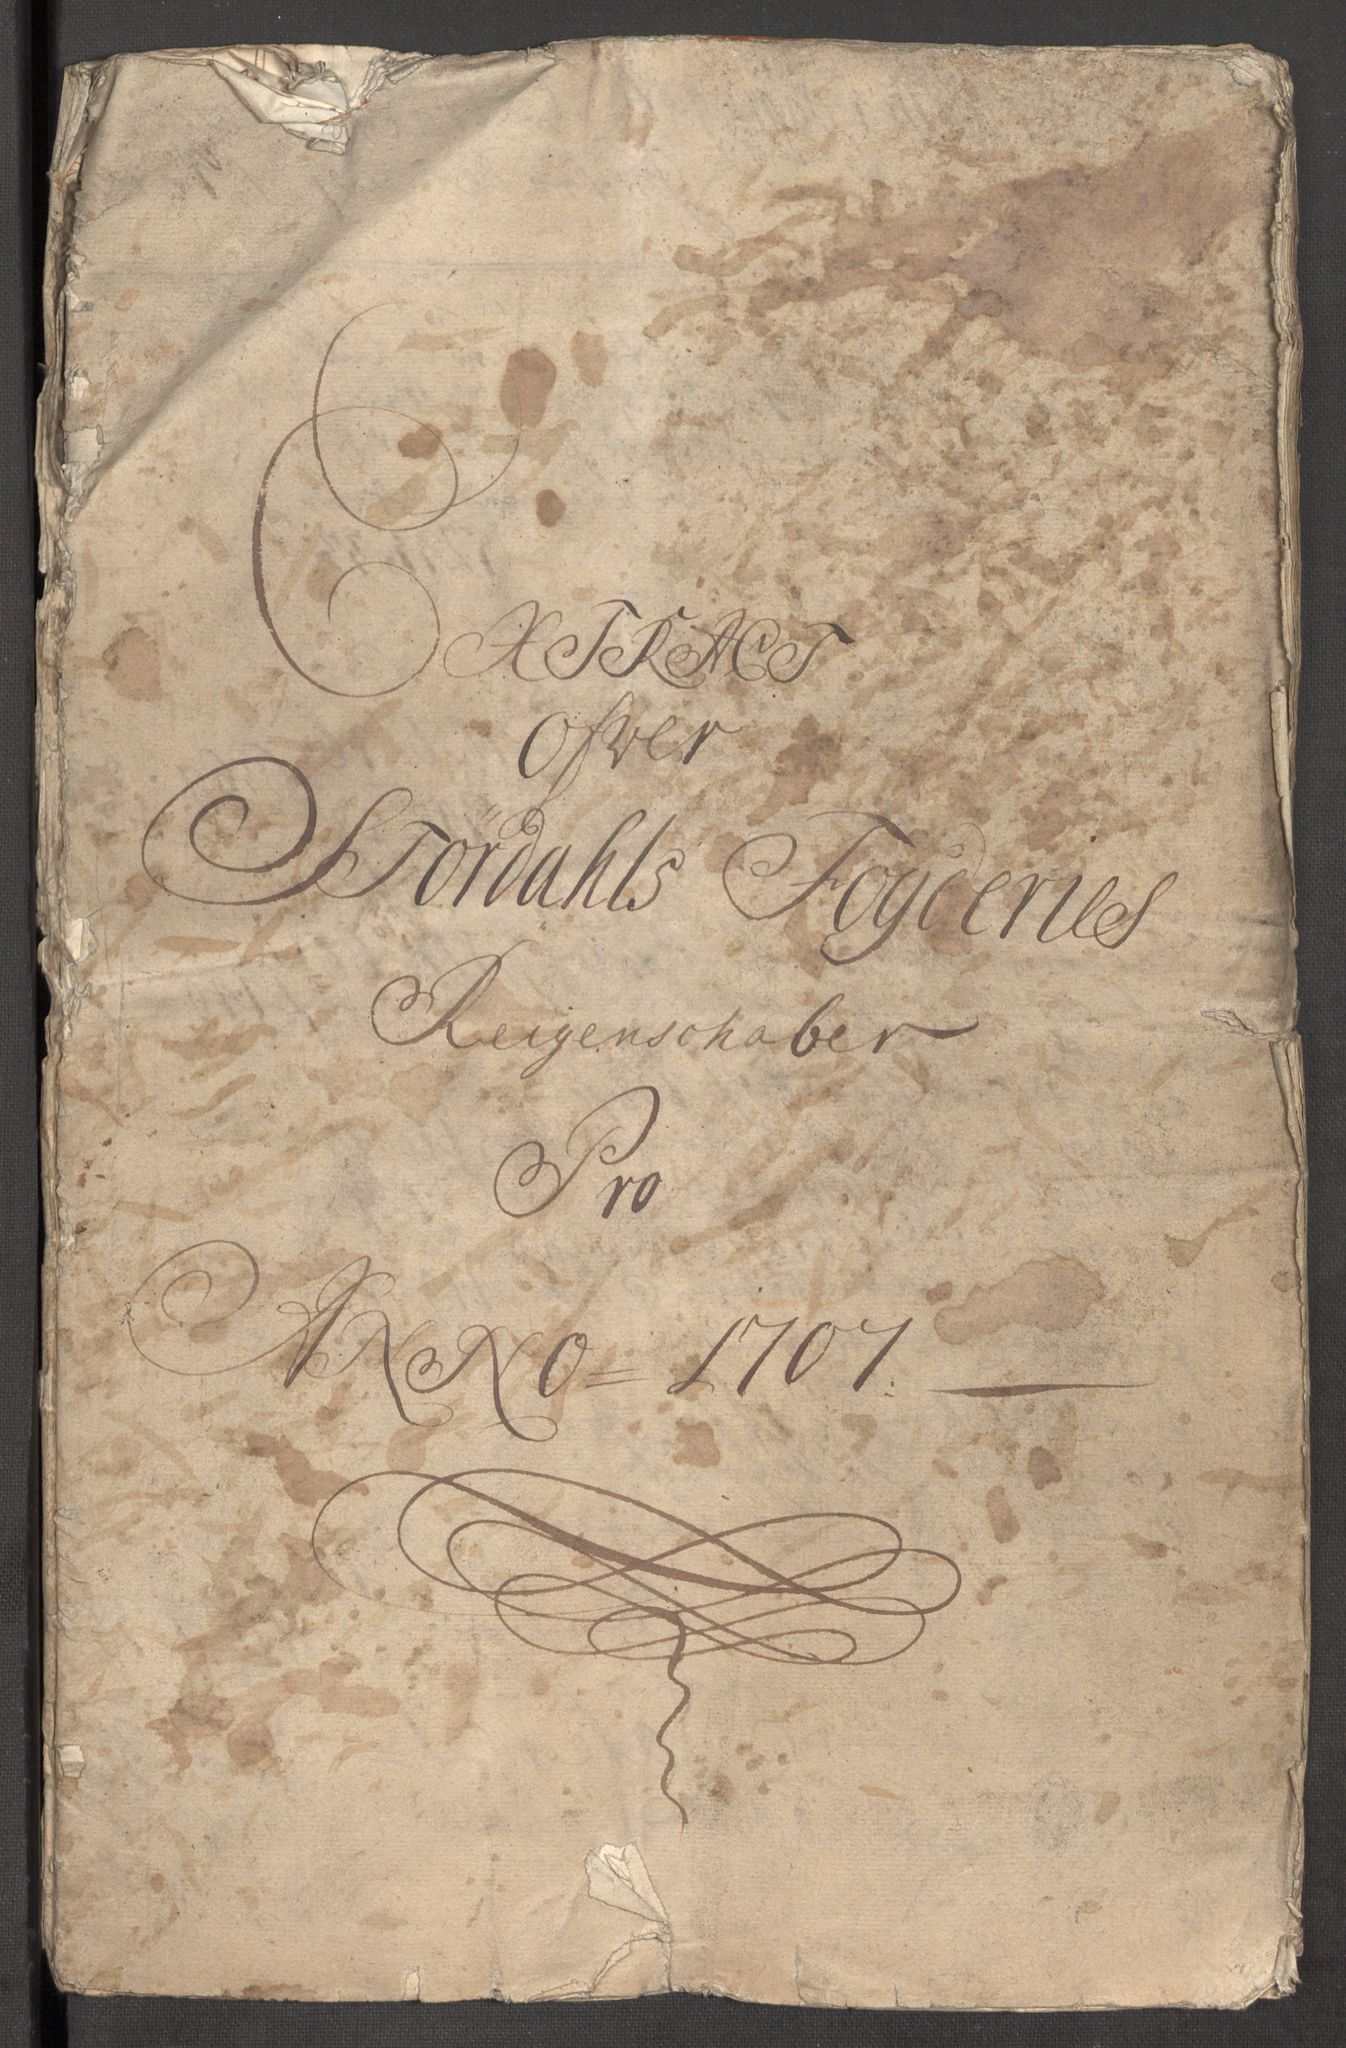 EXTRACT
Ofver
Stördahls Fogderies
Reigenschaber
Pro
ANNO = 1707.